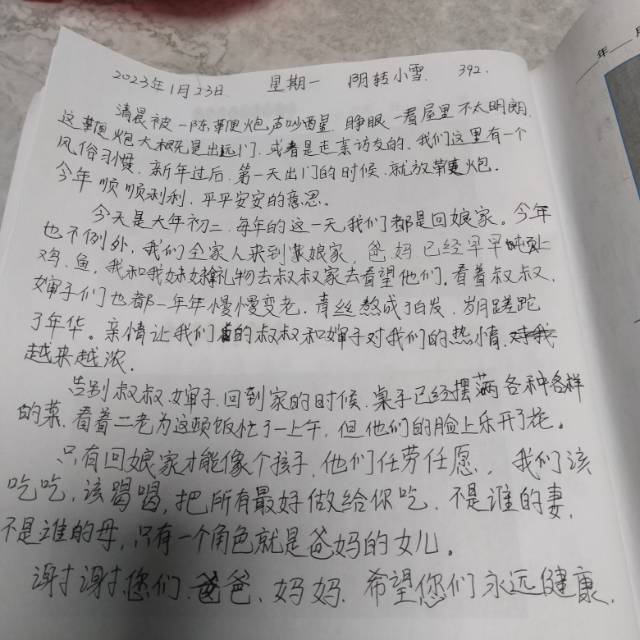 2023年1月23日 星期一 阴转小雪. 392.
清晨被一阵鞭炮声吵醒. 睁眼一看屋里不太明朗.
这鞭炮大概是出远门. 或者是走亲访友的. 我们这里有一个
风俗习惯. 新年过后. 第一天出门的时候. 就放鞭炮.
今年顺顺利利. 平平安安的意思.
今天是大年初二. 每年的这一天. 我们都是回娘家。今年
也不例外. 我们全家人来到娘家. 爸. 妈已经早早炖上
鸡. 鱼. 我和我妹妹礼物去叔叔家去看望他们. 看着叔叔.
婶子们也都一年年慢慢变老. 青丝熬成了白发. 岁月蹉跎
了年华。亲情让我们的叔叔和婶子对我们的热情.
越来越浓.
告别叔叔. 婶子. 回到家的时候. 桌子已经摆满各种各样
的菜. 看着二老为这顿饭忙了一上午. 但他们的脸上乐开了花。
只有回娘家才能像个孩子. 他们任劳任愿. 我们该
吃吃. 该喝喝. 把所有最好做给你吃. 不是谁的妻.
不是谁的母. 只有一个角色就是爸妈的女儿。
谢谢您们. 爸爸. 妈妈. 希望您们永远健康.
年 月